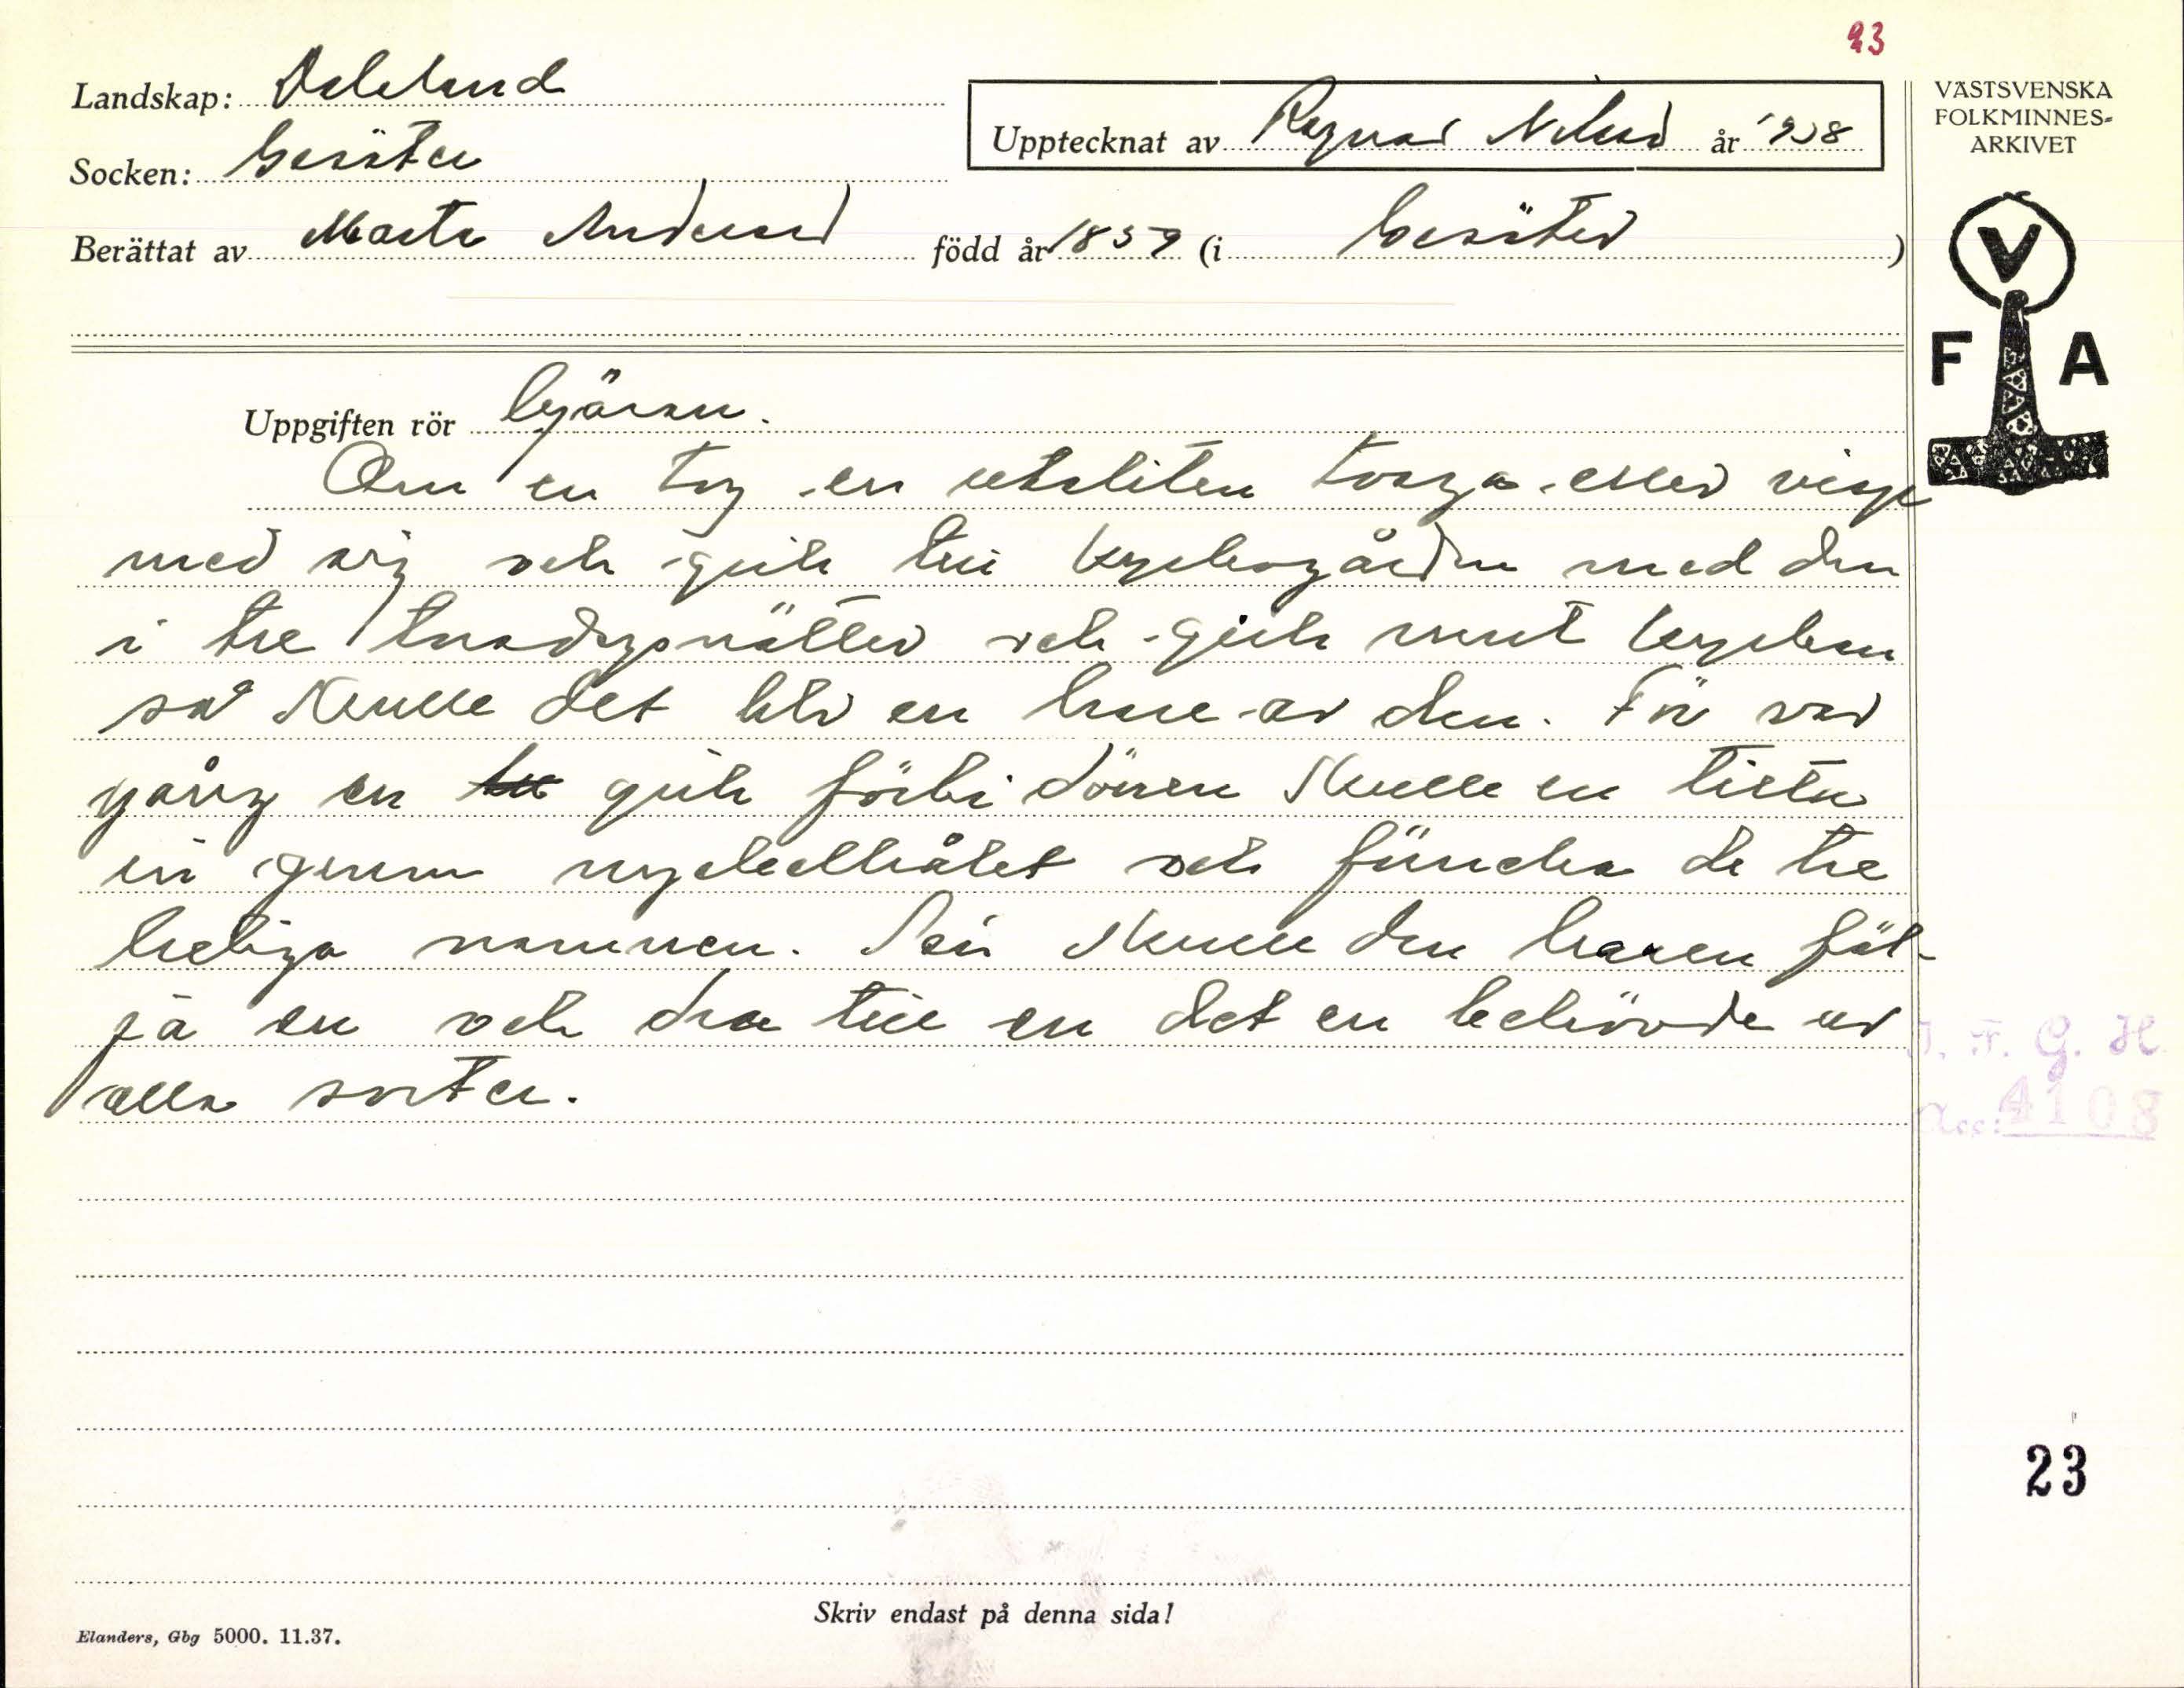 23
Landskap: Dalsland
Upptecknat av Ragnar Nilsson år 1938
VÄSTSVENSKA
FOLKMINNES-
ARKIVET
Socken: Gesäter
Berättat av Marta Andersson född år 1859 (i Gesäter)
V
F A
Uppgiften rör Bjäran.
Om en tog en utsliten korg eller visp
med sig och gick till kyrkogården med den
i tre torsdagsnätter och gick runt kyrkan
så skulle det bli en hare av den. För var
gång en gick förbi dörren skulle en titta
in genom nyckelhålet och förneka de tre
heliga namnen. Sen skulle den haren föl-
ja en och dra till en det en behövde av
alla sorter.
I. F. G. H.
Acc: 4108
23
Skriv endast på denna sida!
Elanders, Gbg 5000. 11.37.